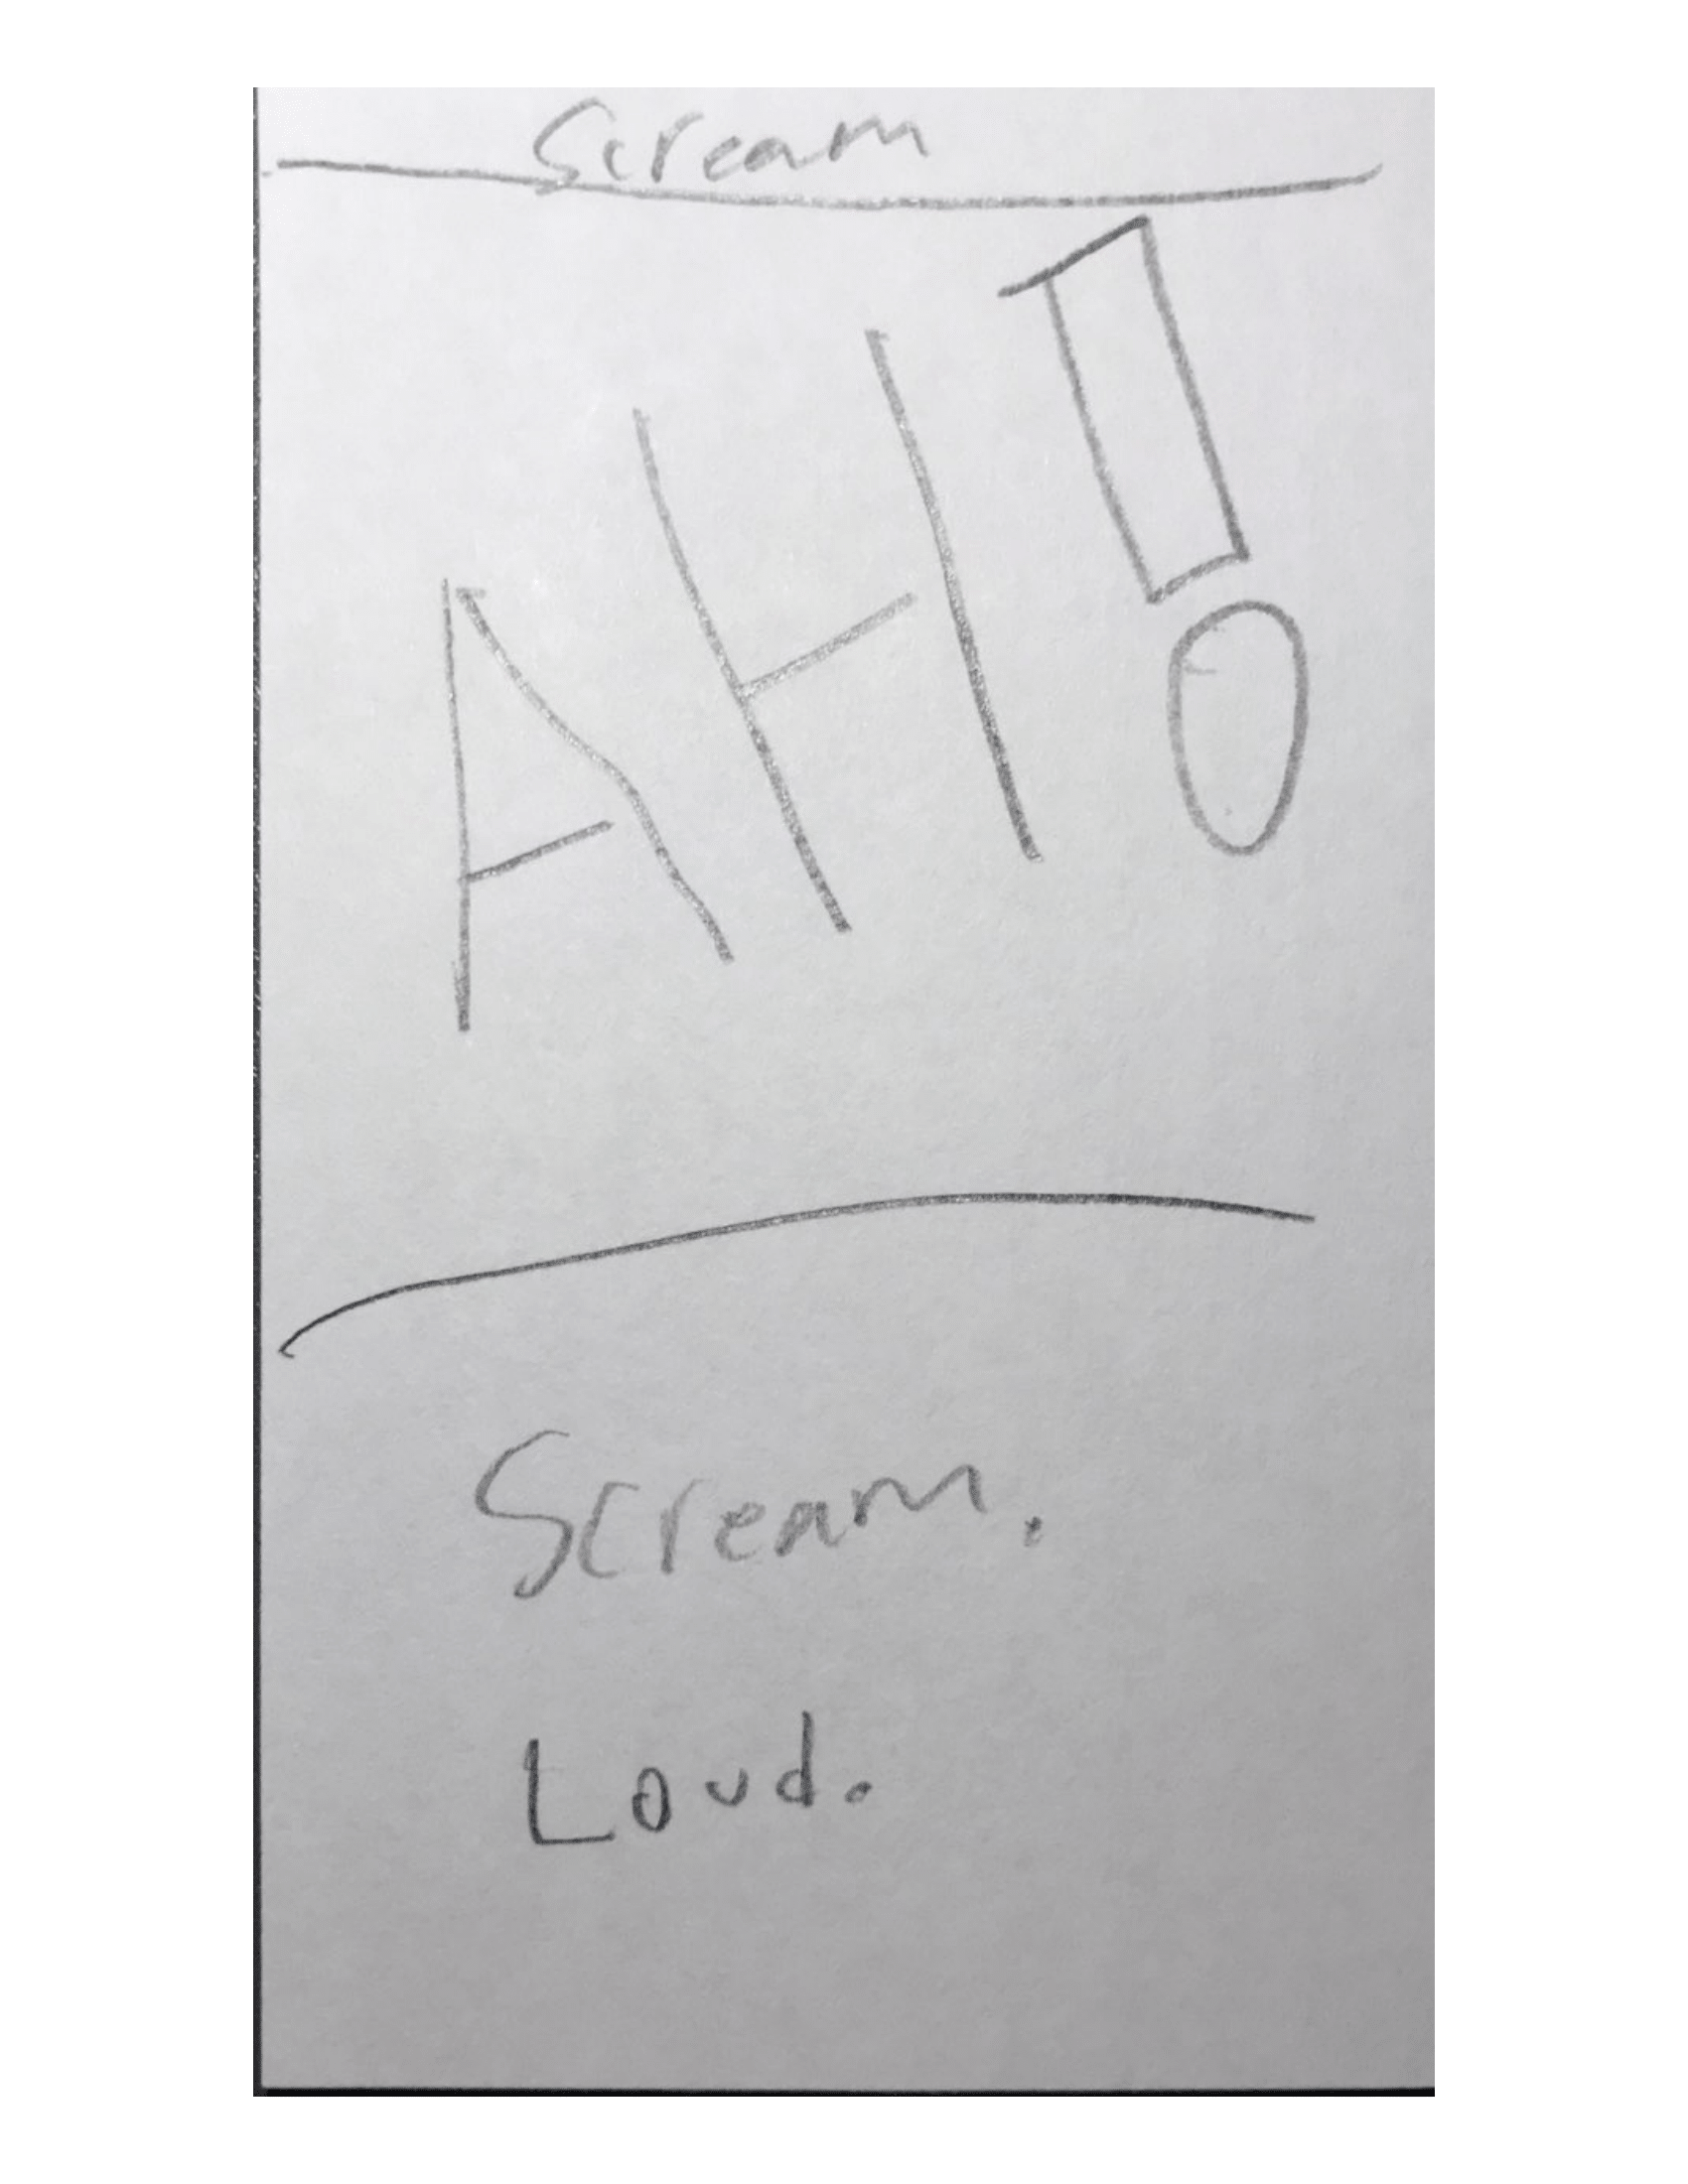 Scream
AH!
Scream.
Loud.